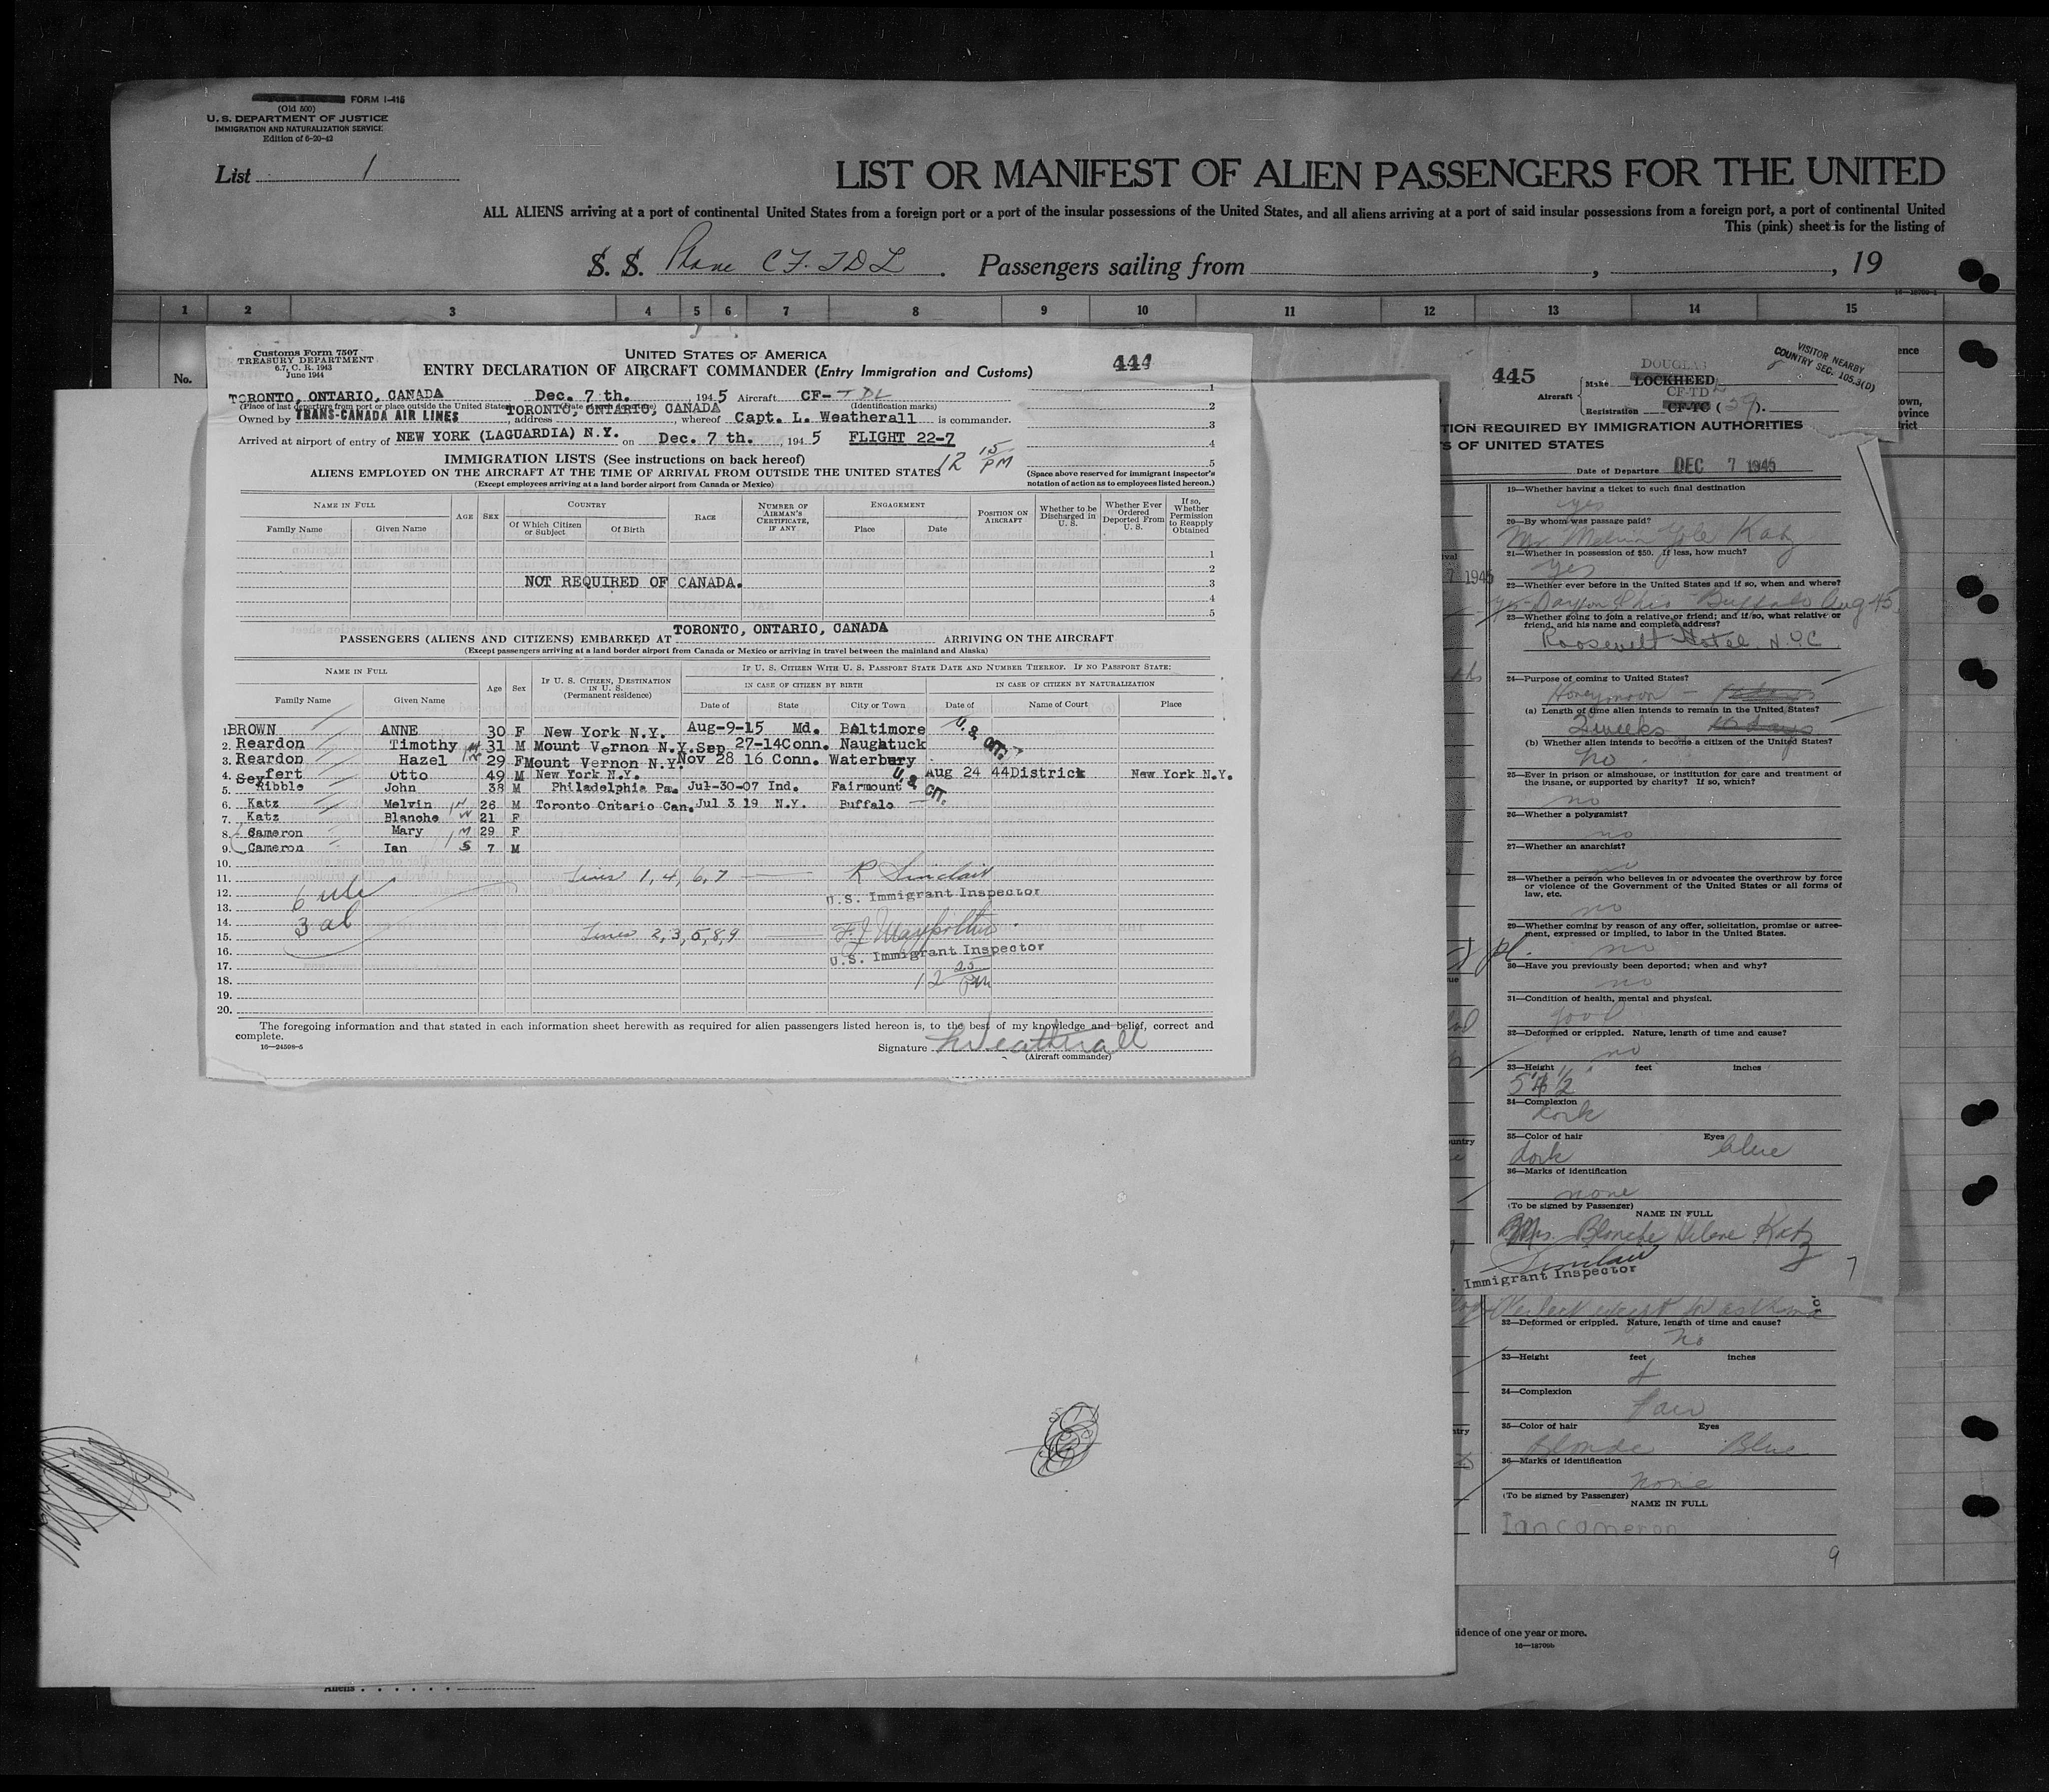 FORM I-415
(Old 500)
U. S. DEPARTMENT OF JUSTICE
IMMIGRATION AND NATURALIZATION SERVICE
Edition of 6-20-42
List 1
LIST OR MANIFEST OF ALIEN PASSENGERS FOR THE UNITED
ALL ALIENS arriving at a port of continental United States from a foreign port or a port of the insular possessions of the United States, and all aliens arriving at a port of said insular possessions from a foreign port, a port of continental United
This (pink) sheet is for the listing of
S. S. Plane CF. TDL. Passengers sailing from , , 19
16—18709-1
1 2 3 4 5 6 7 8 9 10 11 12 13 14 15
No.
Customs Form 7507
TREASURY DEPARTMENT
6.7, C. R. 1943
June 1944
UNITED STATES OF AMERICA
444
ENTRY DECLARATION OF AIRCRAFT COMMANDER (Entry Immigration and Customs)
TORONTO, ONTARIO, CANADA Dec. 7 th. 1945 Aircraft CF- TDL
(Place of last departure from port or place outside the United States) (Identification marks)
Owned by TRANS-CANADA AIR LINES, address TORONTO, ONTARIO, CANADA, whereof Capt. L. Weatherall is commander.
Arrived at airport of entry of NEW YORK (LAGUARDIA) N.Y. on Dec. 7 th., 1945 FLIGHT 22-7
12 15 PM
1
2
3
4
5
IMMIGRATION LISTS (See instructions on back hereof)
ALIENS EMPLOYED ON THE AIRCRAFT AT THE TIME OF ARRIVAL FROM OUTSIDE THE UNITED STATES
(Except employees arriving at a land border airport from Canada or Mexico)
(Space above reserved for immigrant inspector's
notation of action as to employees listed hereon.)
NAME IN FULL
Family Name Given Name AGE SEX
COUNTRY
Of Which Citizen or Subject Of Birth RACE
NUMBER OF AIRMAN'S CERTIFICATE, IF ANY
ENGAGEMENT
Place Date
POSITION ON AIRCRAFT
Whether to be Discharged in U. S.
Whether Ever Ordered Deported From U. S.
If so, Whether Permission to Reapply Obtained
1
2
NOT REQUIRED OF CANADA. 3
4
5
PASSENGERS (ALIENS AND CITIZENS) EMBARKED AT TORONTO, ONTARIO, CANADA ARRIVING ON THE AIRCRAFT
(Except passengers arriving at a land border airport from Canada or Mexico or arriving in travel between the mainland and Alaska)
NAME IN FULL
Family Name Given Name Age Sex
IF U. S. CITIZEN, DESTINATION IN U. S.
(Permanent residence)
IF U. S. CITIZEN WITH U. S. PASSPORT STATE DATE AND NUMBER THEREOF. IF NO PASSPORT STATE:
IN CASE OF CITIZEN BY BIRTH IN CASE OF CITIZEN BY NATURALIZATION
Date of State City or Town Date of Name of Court Place
1. BROWN ANNE 30 F New York N.Y. Aug-9-15 Md. Baltimore U. S. CIT.
2. Reardon Timothy M 31 M Mount Vernon N.Y. Sep 27-14 Conn. Naughtuck
3. Reardon Hazel 29 F Mount Vernon N.Y. Nov 28 16 Conn. Waterbury
4. Seyfert Otto 49 M New York N.Y. Aug 24 44 District New York N.Y.
5. Ribble John 38 M Philadelphia Pa. Jul-30-07 Ind. Fairmount U. S. CIT.
6. Katz Melvin 26 M Toronto Ontario Can. Jul 3 19 N.Y. Buffalo
7. Katz Blanche 21 F
8. Cameron Mary M 29 F
9. Cameron Ian S 7 M
10.
11. Lines 1, 4, 6, 7 R Sinclair
12. U.S. Immigrant Inspector
13.
14.
15. Lines 2, 3, 5, 8, 9
16. U.S. Immigrant Inspector
17.
18. 12 25 PM
19.
20.
3 al
The foregoing information and that stated in each information sheet herewith as required for alien passengers listed hereon is, to the best of my knowledge and belief, correct and
complete.
16—24598-5
Signature L Weatherall
(Aircraft commander)
445
Aircraft
Make DOUGLAS LOCKHEED
CF-TD L
Registration CF-TC (59).
VISITOR NEARBY
COUNTRY SEC. 105.3(D)
TION REQUIRED BY IMMIGRATION AUTHORITIES
S OF UNITED STATES
Date of Departure DEC 7 1945
19—Whether having a ticket to such final destination
yes
20—By whom was passage paid?
Mr Melvin Yole Katz
21—Whether in possession of $50. If less, how much?
yes
22—Whether ever before in the United States and if so, when and where?
yes-Dayton Ohio - Buffalo Aug 45
23—Whether going to join a relative or friend; and if so, what relative or
friend, and his name and complete address?
Roosevelt Hotel. N.Y.C
24—Purpose of coming to United States?
Honeymoon
(a) Length of time alien intends to remain in the United States?
2 weeks 10 days
(b) Whether alien intends to become a citizen of the United States?
no
25—Ever in prison or almshouse, or institution for care and treatment of
the insane, or supported by charity? If so, which?
no
26—Whether a polygamist?
no
27—Whether an anarchist?
no
28—Whether a person who believes in or advocates the overthrow by force
or violence of the Government of the United States or all forms of
law, etc.
no
29—Whether coming by reason of any offer, solicitation, promise or agree-
ment, expressed or implied, to labor in the United States.
no
30—Have you previously been deported; when and why?
no
31—Condition of health, mental and physical.
good
32—Deformed or crippled. Nature, length of time and cause?
no
33—Height feet inches
34—Complexion
dark
35—Color of hair Eyes
dark blue
36—Marks of identification
none
(To be signed by Passenger)
NAME IN FULL
Mrs. Blanche Helene Katz
Sinclair
Immigrant Inspector
7
Perfect except for asthma
32—Deformed or crippled. Nature, length of time and cause?
no
33—Height feet inches
4
34—Complexion
Fair
35—Color of hair Eyes
Blonde Blue
36—Marks of identification
none
(To be signed by Passenger)
NAME IN FULL
Ian cameron
9
idence of one year or more.
16—18709b
Aliens